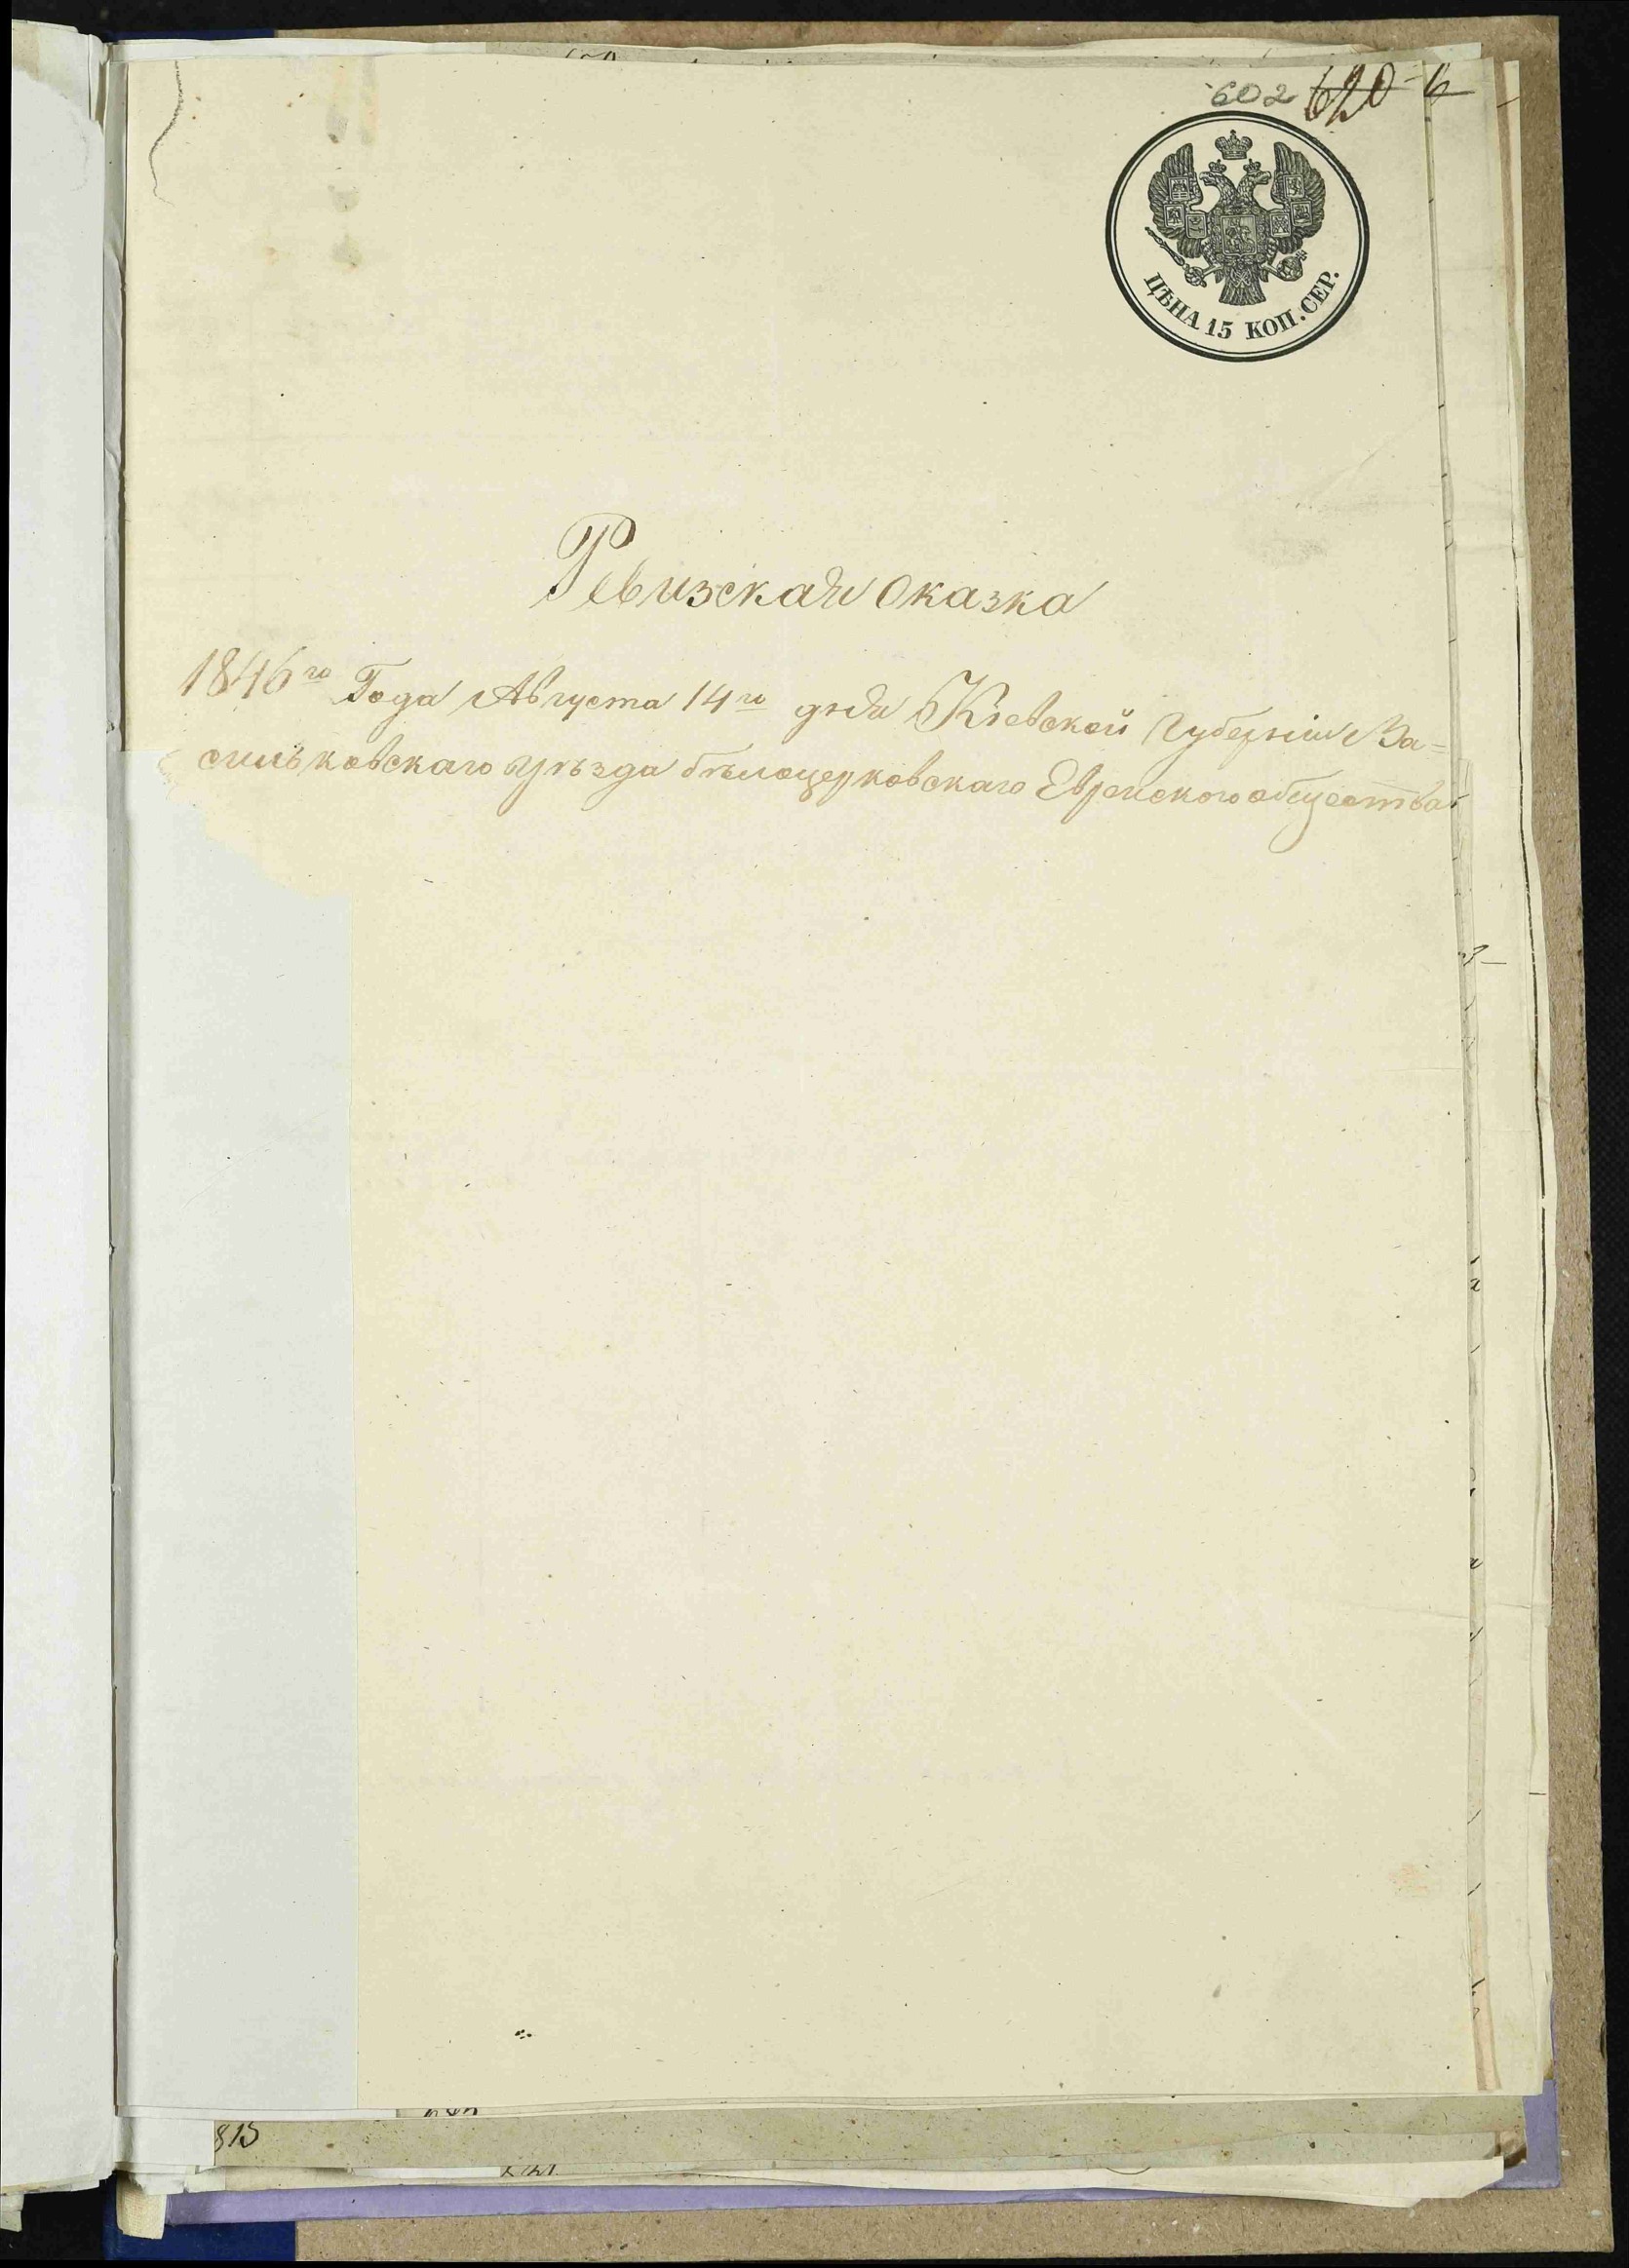 602 620
ЦѢНА 15 КОП. СЕР.
Ревизская сказка
1846го Года Августа 14го дня Кіевской Губерніи Ва=
сильковскаго Уѣзда бѣлоцерковскаго Еврейского общества
815